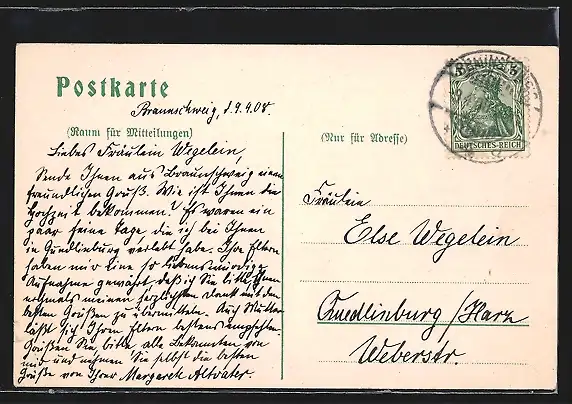 Postkarte
Braunschweig, d. 9.4.08.
(Raum für Mitteilungen)
(Nur für Adresse)
5 5
DEUTSCHES REICH
Liebes Fräulein Wegelein,
Sende Ihnen aus Braunschweig einen
freundlichen Gruß. Wie ist Ihnen die
Hochzeit bekommen? Es waren ein
paar feine Tage, die ich bei Ihnen
in Quedlinburg verlebt habe. Ihre Eltern
haben mir eine so liebenswürdige
Aufnahme gewährt, daß ich Sie bitte, Ihnen
nochmals meinen herzlichsten Dank mit den
besten Grüßen zu übermitteln. Auch Mutter
läßt sich Ihren Eltern bestens empfehlen.
Grüßen Sie bitte alle Bekannten von
mir und nehmen Sie selbst die besten
Grüße von Ihrer Margarete Altvater.
Fräulein
Else Wegelein
Quedlinburg / Harz
Weberstr.